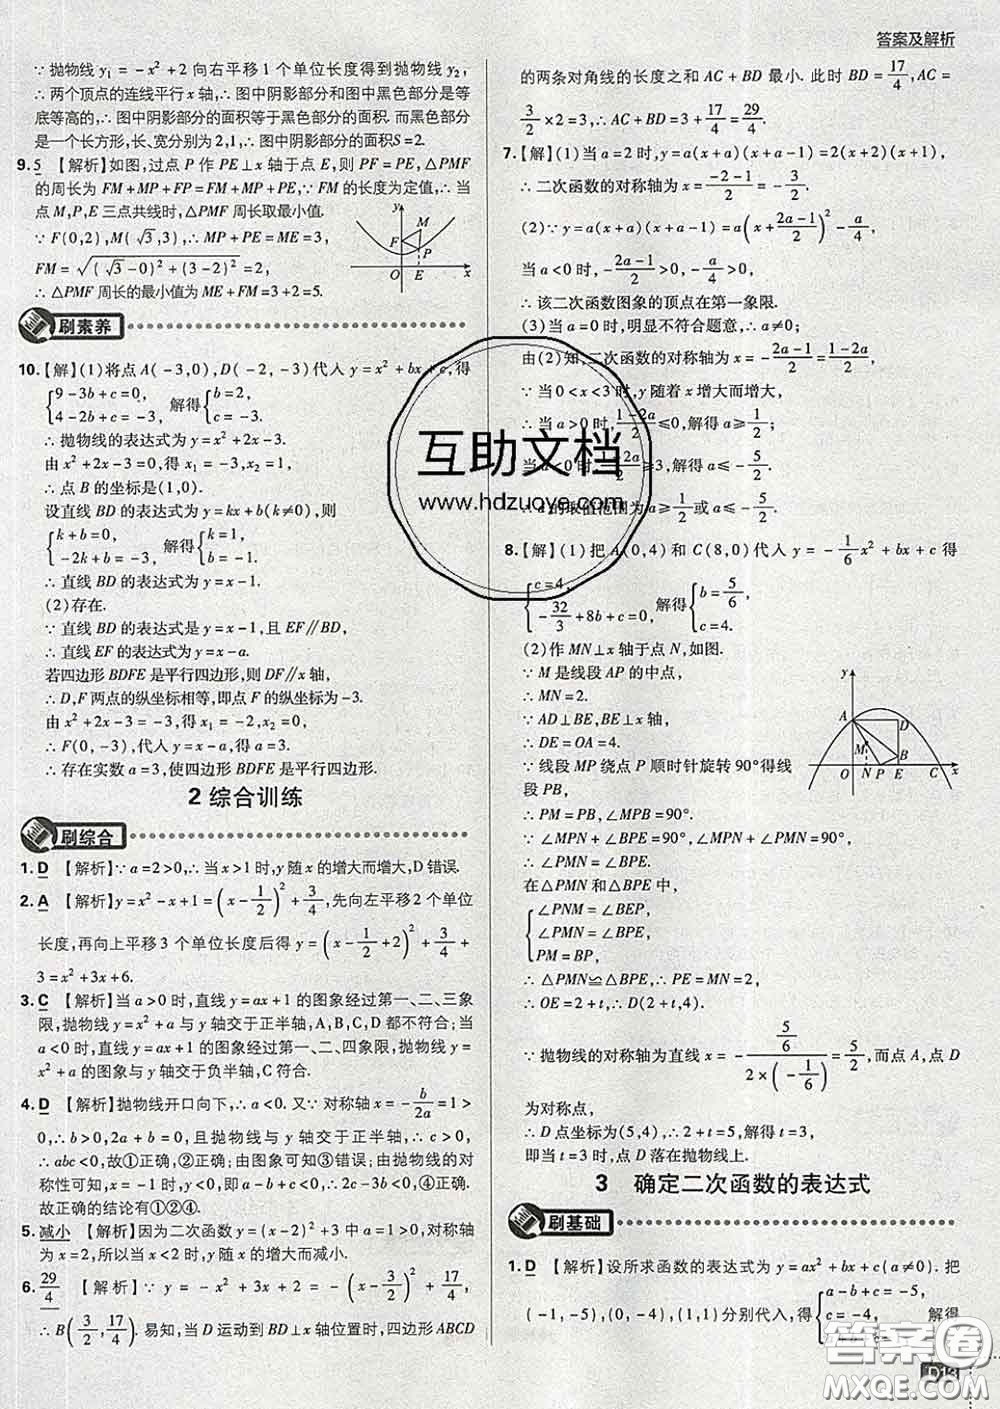 答案及解析
∵ 抛物线 y₁ = -x² + 2 向右平移 1 个单位长度得到抛物线 y₂,
∴ 两个顶点的连线平行 x 轴, ∴ 图中阴影部分和图中黑色部分是等
底等高的, ∴ 图中阴影部分的面积等于黑色部分的面积. 而黑色部分
是一个长方形, 长、宽分别为 2,1, ∴ 图中阴影部分的面积 S = 2.
9. 5 【解析】如图, 过点 P 作 PE⊥x 轴于点 E, 则 PF = PE, △PMF
的周长为 FM + MP + FP = FM + MP + PE, ∵ FM 的长度为定值, ∴ 当
点 M,P,E 三点共线时, △PMF 周长取最小值.
∵ F(0,2), M(√3,3), ∴ MP + PE = ME = 3,
FM = √((√3 - 0)² + (3 - 2)²) = 2,
∴ △PMF 周长的最小值为 ME + FM = 3 + 2 = 5.
y M F P O E x
刷素养
10. 【解】(1) 将点 A(-3,0), D(-2,-3) 代入 y = x² + bx + c, 得
{9 - 3b + c = 0, 4 - 2b + c = -3, 解得 {b = 2, c = -3,
∴ 抛物线的表达式为 y = x² + 2x - 3.
由 x² + 2x - 3 = 0, 得 x₁ = -3, x₂ = 1,
∴ 点 B 的坐标是 (1,0).
设直线 BD 的表达式为 y = kx + b(k≠0), 则
{k + b = 0, -2k + b = -3, 解得 {k = 1, b = -1,
∴ 直线 BD 的表达式为 y = x - 1.
(2) 存在.
∵ 直线 BD 的表达式为 y = x - 1, 且 EF∥BD,
∴ 直线 EF 的表达式为 y = x - a.
若四边形 BDFE 是平行四边形, 则 DF∥x 轴,
∴ D,F 两点的纵坐标相等, 即点 F 的纵坐标为 -3.
由 x² + 2x - 3 = -3, 得 x₁ = -2, x₂ = 0,
∴ F(0,-3), 代入 y = x - a, 得 a = 3,
∴ 存在实数 a = 3, 使四边形 BDFE 是平行四边形.
2 综合训练
刷综合
1. D 【解析】∵ a = 2 > 0, ∴ 当 x > 1 时, y 随 x 的增大而增大, D 错误.
2. A 【解析】y = x² - x + 1 = (x - 1/2)² + 3/4, 先向左平移 2 个单位
长度, 再向上平移 3 个单位长度后得 y = (x - 1/2 + 2)² + 3/4
+ 3 = x² + 3x + 6.
3. C 【解析】当 a > 0 时, 直线 y = ax + 1 的图象经过第一、二、三象
限, 抛物线 y = x² + a 与 y 轴交于正半轴, A,B,C,D 都不符合; 当
a < 0 时, 直线 y = ax + 1 的图象经过第一、二、四象限, 抛物线 y =
x² + a 与 y 轴交于负半轴, C 符合.
4. D 【解析】抛物线开口向下, ∴ a < 0. 又 ∵ 对称轴 x = -b/2a = 1 >
0, ∴ b > 0, 2a + b = 0, 且抛物线与 y 轴交于正半轴, ∴ c > 0,
∴ abc < 0, 故①正确, ②正确; 由图象可知③错误; 由抛物线的对
称性可知, x = -1 时, y < 0, 即 a - b + c < 0, 故④正确, ∴ 正
确的结论有①②④.
5. 减小 【解析】因为二次函数 y = (x - 2)² + 3 中 a = 1 > 0, 对称轴
为 x = 2, 所以当 x < 2 时, y 随 x 的增大而减小.
6. 29/4 【解析】∵ y = -x² + 3x + 2 = -(x - 3/2)² + 17/4,
∴ B(3/2, 17/4). 易知, 当 D 运动到 BD⊥x 轴位置时, 四边形 ABCD
的两条对角线的长度之和 AC + BD 最小. 此时 BD = 17/4, AC =
3/2 × 2 = 3, ∴ AC + BD = 3 + 17/4 = 29/4.
7. 【解】(1) 当 a = 2 时, y = a(x + a)(x + a - 1) = 2(x + 2)(x + 1),
∴ 二次函数的对称轴为 x = (-2 - 1)/2 = -3/2.
(2) ∵ y = a(x + a)(x + a - 1) = a(x + (2a - 1)/2)² - a/4,
当 a < 0 时, -(2a - 1)/2 > 0, -a/4 > 0,
∴ 该二次函数图象的顶点在第一象限.
(3) 当 a = 0 时, 明显不符合题意, ∴ a ≠ 0;
由 (2) 知, 二次函数的对称轴为 x = -(2a - 1)/2 = (1 - 2a)/2,
∵ 当 0 < x < 3 时, y 随着 x 增大而增大,
∴ 当 a > 0 时, (1 - 2a)/2 ≤ 0, 解得 a ≥ 1/2;
当 a < 0 时, (1 - 2a)/2 ≥ 3, 解得 a ≤ -5/2,
∴ a 的取值范围为 a ≥ 1/2 或 a ≤ -5/2.
8. 【解】(1) 把 A(0,4) 和 C(8,0) 代入 y = -1/6 x² + bx + c 得
{c = 4, -32/3 + 8b + c = 0, 解得 {b = 5/6, c = 4.
(2) 作 MN⊥x 轴于点 N, 如图.
∵ M 是线段 AP 的中点,
∴ MN = 2.
∵ AD⊥BE, BE⊥x 轴,
∴ DE = OA = 4.
∵ 线段 MP 绕点 P 顺时针旋转 90° 得线
段 PB,
∴ PM = PB, ∠MPB = 90°,
∴ ∠MPN + ∠BPE = 90°, ∠MPN + ∠PMN = 90°,
∴ ∠PMN = ∠BPE.
在 △PMN 和 △BPE 中,
{∠PNM = ∠BEP, ∠PMN = ∠BPE, PM = BP,
∴ △PMN≌△BPE, ∴ PE = MN = 2,
∴ OE = 2 + t, ∴ D(2 + t,4).
y A D M B O N P E C x
∵ 抛物线的对称轴为直线 x = -(5/6)/(2×(-1/6)) = 5/2, 而点 A, 点 D
为对称点,
∴ D 点坐标为 (5,4), ∴ 2 + t = 5, 解得 t = 3,
即当 t = 3 时, 点 D 落在抛物线上.
3 确定二次函数的表达式
刷基础
1. D 【解析】设所求函数的表达式为 y = ax² + bx + c(a≠0). 把
(-1,-5), (0,-4), (1,1) 分别代入, 得 {a - b + c = -5, c = -4, 解得
D13
互助文档
www.hdzuoye.com
答案圈
MXQE.COM